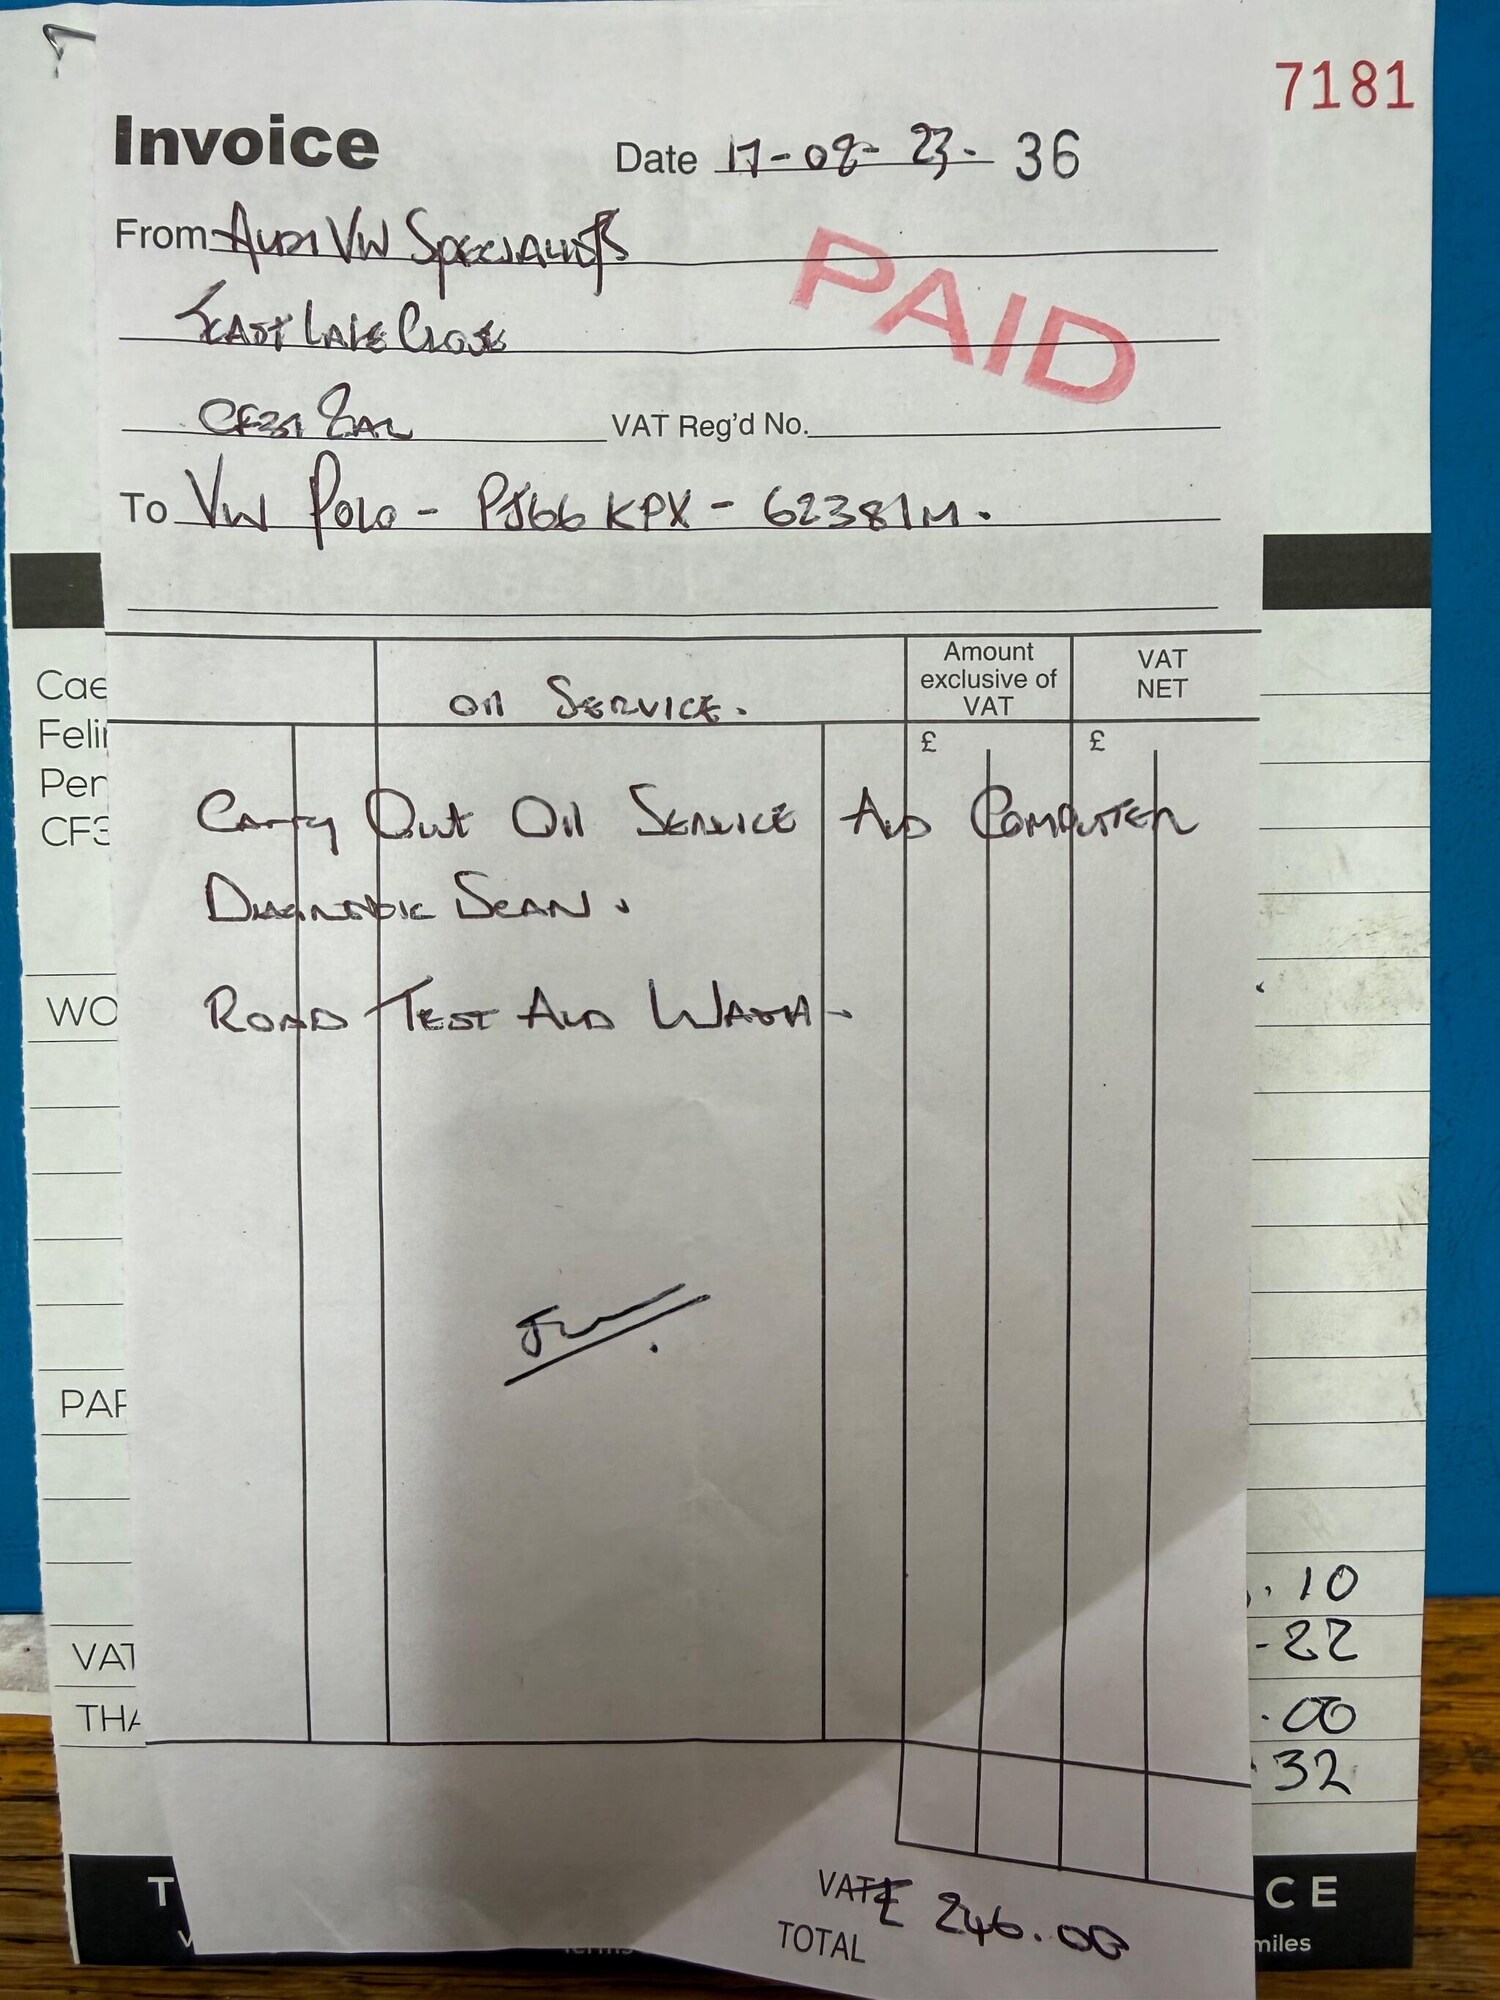 7181
Invoice Date 17-08-23. 36
From Audi VW Specialists
PAID
Lake Close
CF31 2AL VAT Reg'd No.
To VW Polo - PJ66 KPX - 62381M.
Amount exclusive of VAT
VAT NET
Oil Service.
£ £
Carry Out Oil Service And Computer
Diagnostic Scan.
Road Test And Wash.
Cae
Felin
Pen
CF3
WO
PAR
VAT
THA
. 10
-22
.00
32
VAT £ 246.00
TOTAL
T
CE
miles